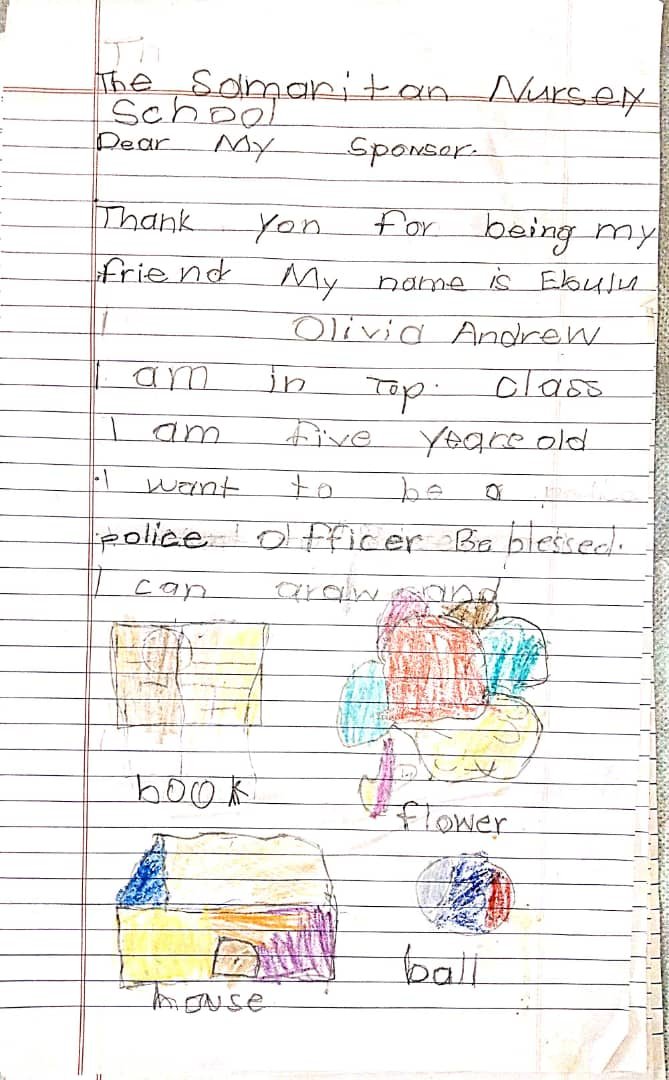 The Samaritan Nursery
School
Dear My Sponsor.
Thank yon for being my
friend My name is Ebulu
Olivia Andrew
I am in Top. class
I am five years old
I want to be a
police officer Be blessed.
I can draw and
book
flower
house
ball